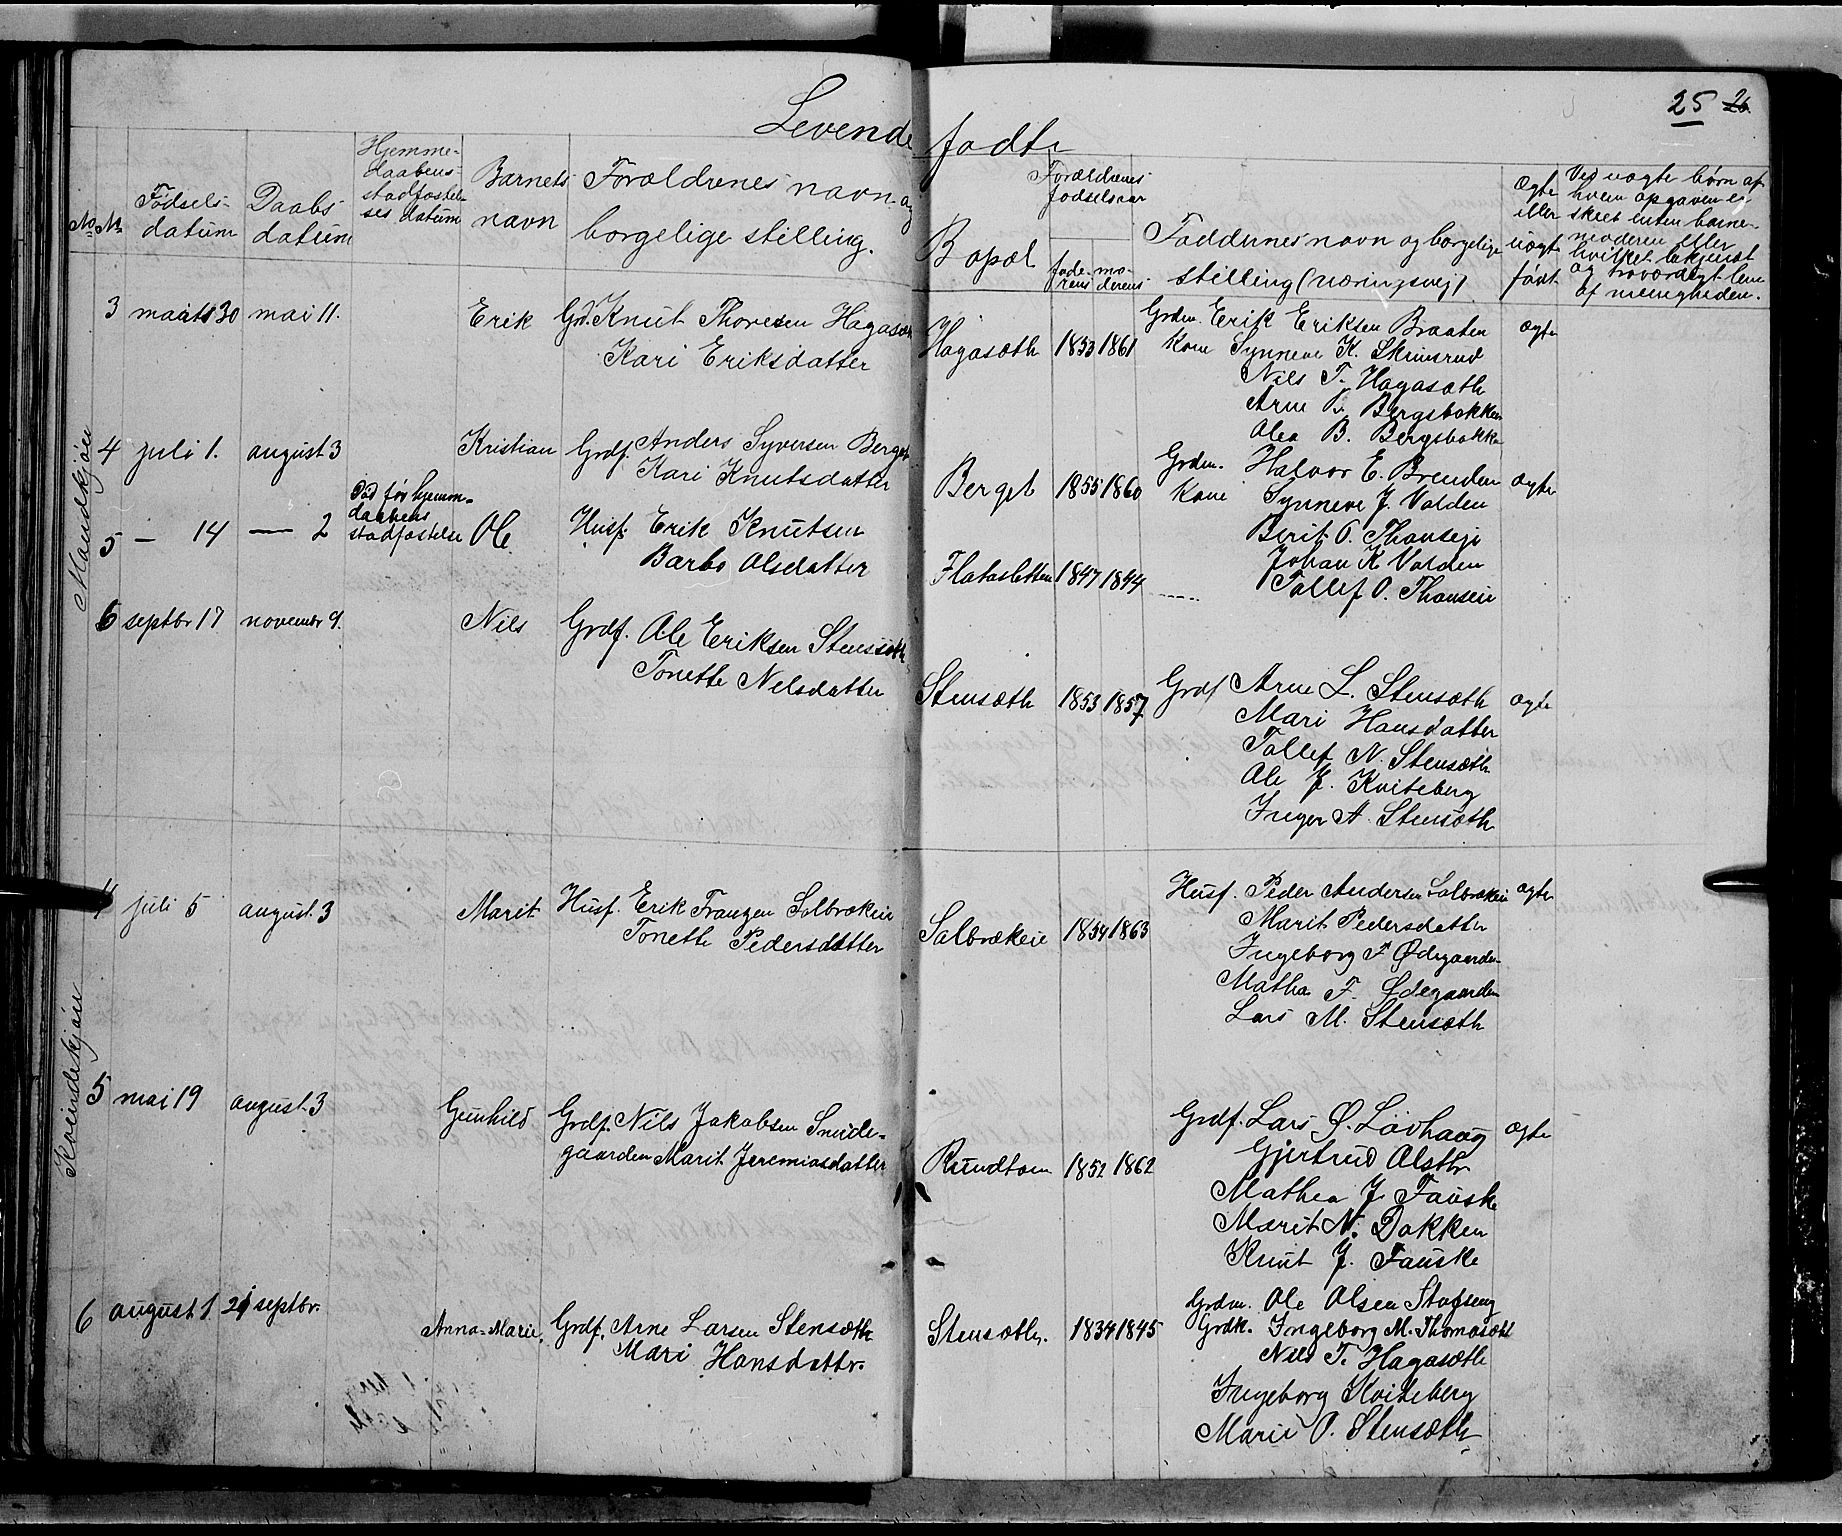 Levende
fødte
25 26
No No
Fødsels-
datum
Daabs-
datum
Hjemme-
daabens
stadfæstel-
ses datum
Barnets
navn
Forældrenes navn og
borgelige stilling.
Bopæl
Forældrenes
fødselsaar
fade-
rens
mo-
derens
Faddernes navn og borgelige
stilling (næringsvej)
Ægte
eller
uægte
født
Ved uægte børn af
hvem opgaven er
skeet enten barne-
moderen eller
hvilket bekjendt
og troværdigt lem
af menigheden.
Mandkjøn
3 marts 30 mai 11. Erik Grd. Knut Thoresen Hagasæth
Kari Eriksdatter
Hagasæth 1853 1861 Grdm. Erik Eriksen Braaten ægte
Kone Synneve K. Skinsrud
Nils T. Hagasæth
Arne B. Bergsbakken
Olea B. Bergsbakke
4 juli 1. august 3 Kristian Grdf. Anders Syversen Berget
Kari Knutsdatter
Berget 1855 1860 Grdm. Halvor E. Brenden ægte
Kone Synneve J. Valden
Berit O. Thonseje
Johan K Valden
Tollef O. Thonseie
5 — 14 — 2 Død før hjemm-
daabens
stadfæstelse Ole Husf. Erik Knutsen
Barbo Olsdatter
Flatasletten 1847 1844
6 septbr 17 novembr 9. Nils Grdf. Ole Eriksen Stensæth
Tonette Nelsdatter
Stensæth 1853 1857 Grdf Arne L. Stensæth ægte
Mari Hansdatter
Tollef N. Stensæth
Ole J. Kviteberg
Inger A. Stensæth
Kvindekjøn
4 juli 5 august 3 Marit Husf. Erik Franzen Solbrækeie
Tonette Pedersdatter
Solbrækeie 1854 1863 Husf. Peder Andersen Solbrækeie ægte
Marit Pedersdatter
Ingeborg F Ødegaarden
Mathea F. Ødegaarden
Lars M. Stensæth
5 mai 19 august 3 Gunhild Grdf. Nils Jakobsen Smide-
gaarden Marit Jeremiasdatter
Rundtom 1852 1862 Grdf. Lars Ø. Løvhaug ægte
Gjertrud Olsdtr
Mathea J. Fauske
Marit N. Dokken
Knut J. Fauske
6 august 1 21 septbr. Anna-Marie. Grdf. Arne Larsen Stensæth
Mari Hansdattr.
Stensæth. 1834 1845 Grdm. Ole Olsen Stafseng
Grdk. Ingeborg M. Thomasæth
Nils T. Hagasæth
Ingeborg Kviteberg
Marie O. Stensæth